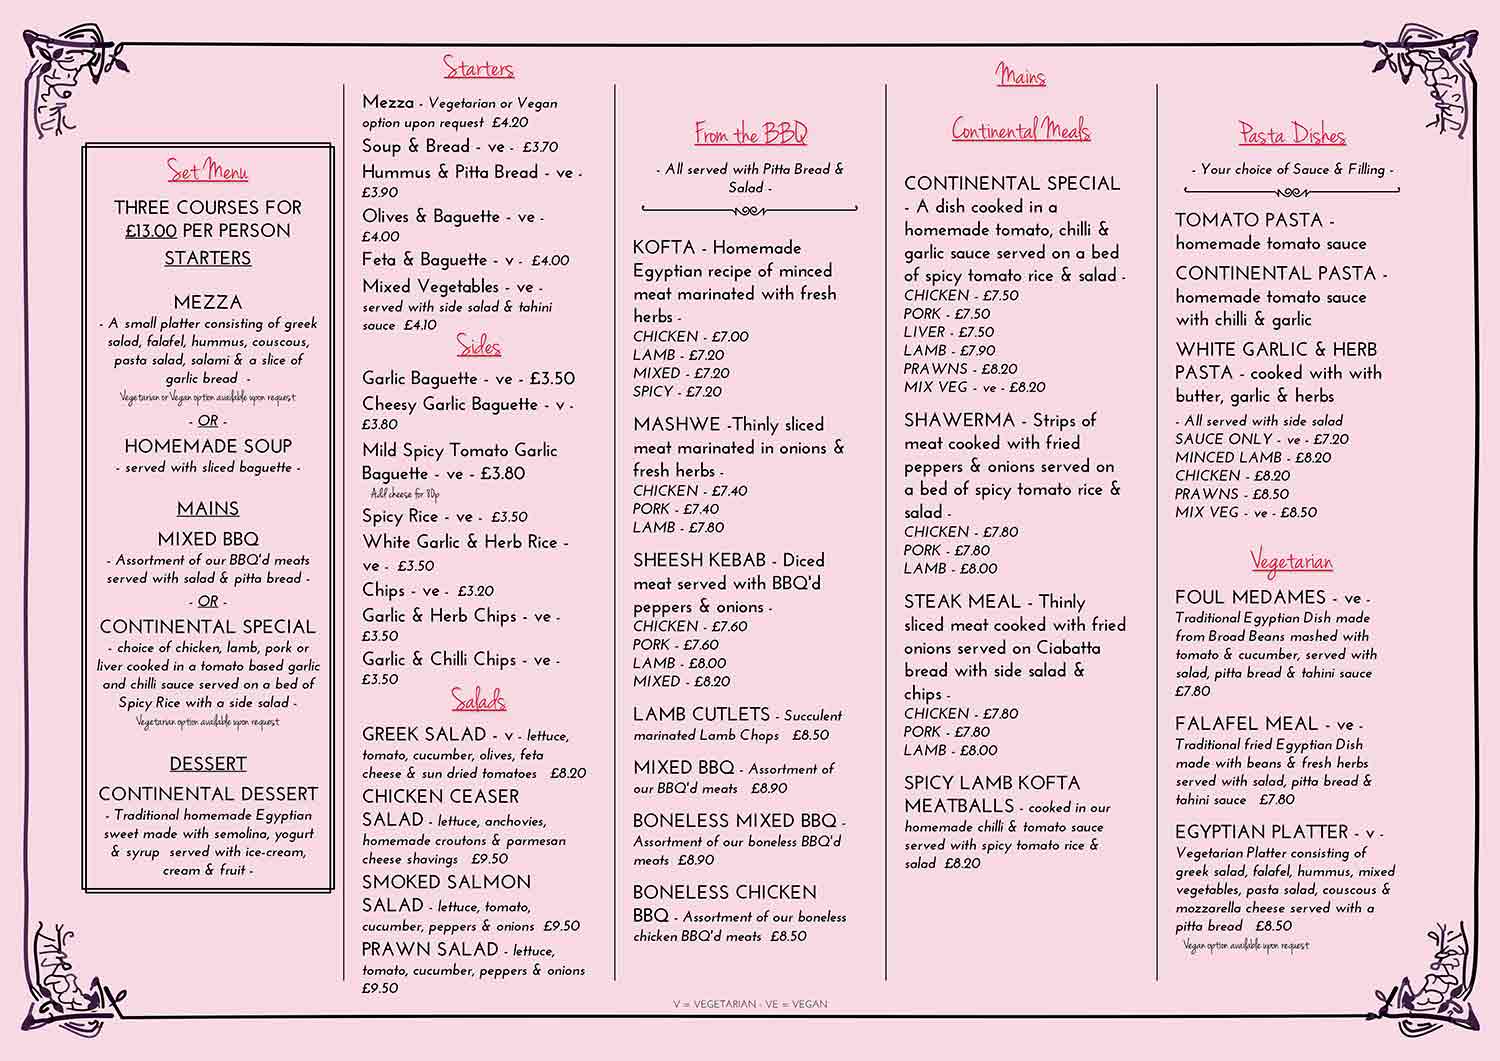 Set Menu
THREE COURSES FOR
£13.00 PER PERSON
STARTERS
MEZZA
- A small platter consisting of greek
salad, falafel, hummus, couscous,
pasta salad, salami & a slice of
garlic bread -
Vegetarian or Vegan option available upon request
- OR -
HOMEMADE SOUP
- served with sliced baguette -
MAINS
MIXED BBQ
- Assortment of our BBQ'd meats
served with salad & pitta bread -
- OR -
CONTINENTAL SPECIAL
- choice of chicken, lamb, pork or
liver cooked in a tomato based garlic
and chilli sauce served on a bed of
Spicy Rice with a side salad -
Vegetarian option available upon request
DESSERT
CONTINENTAL DESSERT
- Traditional homemade Egyptian
sweet made with semolina, yogurt
& syrup served with ice-cream,
cream & fruit -
Starters
Mezza - Vegetarian or Vegan
option upon request £4.20
Soup & Bread - ve - £3.70
Hummus & Pitta Bread - ve -
£3.90
Olives & Baguette - ve -
£4.00
Feta & Baguette - v - £4.00
Mixed Vegetables - ve -
served with side salad & tahini
sauce £4.10
Sides
Garlic Baguette - ve - £3.50
Cheesy Garlic Baguette - v -
£3.80
Mild Spicy Tomato Garlic
Baguette - ve - £3.80
Add cheese for 80p
Spicy Rice - ve - £3.50
White Garlic & Herb Rice -
ve - £3.50
Chips - ve - £3.20
Garlic & Herb Chips - ve -
£3.50
Garlic & Chilli Chips - ve -
£3.50
Salads
GREEK SALAD - v - lettuce,
tomato, cucumber, olives, feta
cheese & sun dried tomatoes £8.20
CHICKEN CEASER
SALAD - lettuce, anchovies,
homemade croutons & parmesan
cheese shavings £9.50
SMOKED SALMON
SALAD - lettuce, tomato,
cucumber, peppers & onions £9.50
PRAWN SALAD - lettuce,
tomato, cucumber, peppers & onions
£9.50
Mains
From the BBQ
- All served with Pitta Bread &
Salad -
KOFTA - Homemade
Egyptian recipe of minced
meat marinated with fresh
herbs -
CHICKEN - £7.00
LAMB - £7.20
MIXED - £7.20
SPICY - £7.20
MASHWE -Thinly sliced
meat marinated in onions &
fresh herbs -
CHICKEN - £7.40
PORK - £7.40
LAMB - £7.80
SHEESH KEBAB - Diced
meat served with BBQ'd
peppers & onions -
CHICKEN - £7.60
PORK - £7.60
LAMB - £8.00
MIXED - £8.20
LAMB CUTLETS - Succulent
marinated Lamb Chops £8.50
MIXED BBQ - Assortment of
our BBQ'd meats £8.90
BONELESS MIXED BBQ -
Assortment of our boneless BBQ'd
meats £8.90
BONELESS CHICKEN
BBQ - Assortment of our boneless
chicken BBQ'd meats £8.50
Continental Meals
CONTINENTAL SPECIAL
- A dish cooked in a
homemade tomato, chilli &
garlic sauce served on a bed
of spicy tomato rice & salad -
CHICKEN - £7.50
PORK - £7.50
LIVER - £7.50
LAMB - £7.90
PRAWNS - £8.20
MIX VEG - ve - £8.20
SHAWERMA - Strips of
meat cooked with fried
peppers & onions served on
a bed of spicy tomato rice &
salad -
CHICKEN - £7.80
PORK - £7.80
LAMB - £8.00
STEAK MEAL - Thinly
sliced meat cooked with fried
onions served on Ciabatta
bread with side salad &
chips -
CHICKEN - £7.80
PORK - £7.80
LAMB - £8.00
SPICY LAMB KOFTA
MEATBALLS - cooked in our
homemade chilli & tomato sauce
served with spicy tomato rice &
salad £8.20
Pasta Dishes
- Your choice of Sauce & Filling -
TOMATO PASTA -
homemade tomato sauce
CONTINENTAL PASTA -
homemade tomato sauce
with chilli & garlic
WHITE GARLIC & HERB
PASTA - cooked with with
butter, garlic & herbs
- All served with side salad
SAUCE ONLY - ve - £7.20
MINCED LAMB - £8.20
CHICKEN - £8.20
PRAWNS - £8.50
MIX VEG - ve - £8.50
Vegetarian
FOUL MEDAMES - ve -
Traditional Egyptian Dish made
from Broad Beans mashed with
tomato & cucumber, served with
salad, pitta bread & tahini sauce
£7.80
FALAFEL MEAL - ve -
Traditional fried Egyptian Dish
made with beans & fresh herbs
served with salad, pitta bread &
tahini sauce £7.80
EGYPTIAN PLATTER - v -
Vegetarian Platter consisting of
greek salad, falafel, hummus, mixed
vegetables, pasta salad, couscous &
mozzarella cheese served with a
pitta bread £8.50
Vegan option available upon request
V = VEGETARIAN - VE = VEGAN